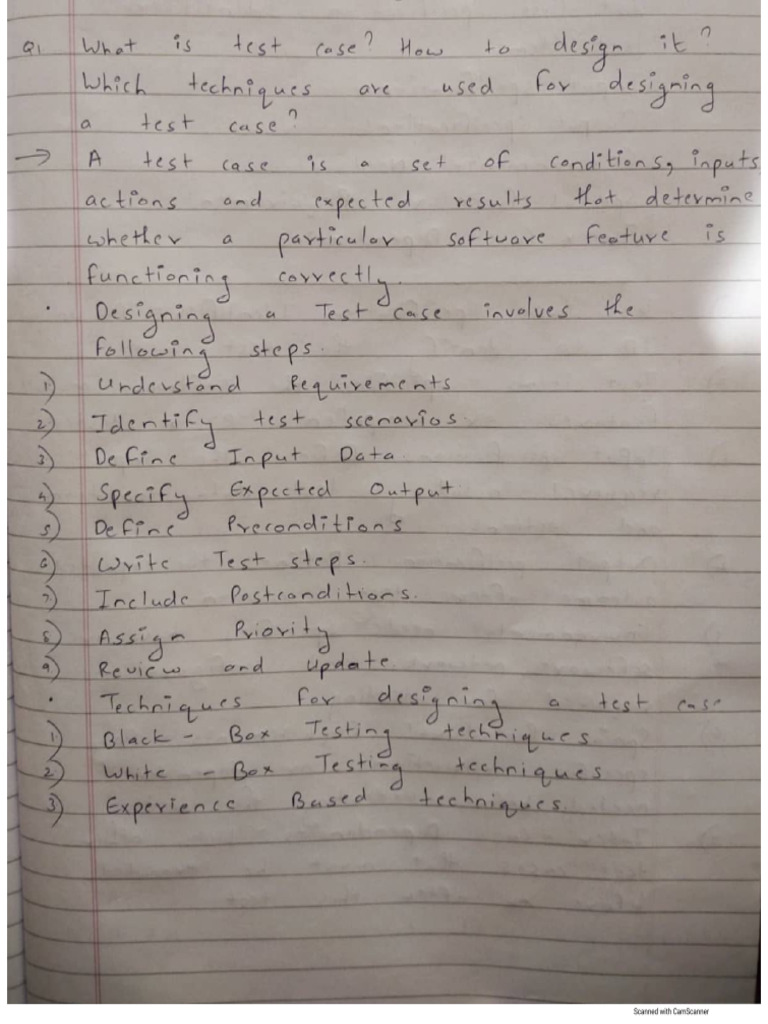 Q1 What is test case? How to design it?
Which techniques are used for designing
a test case?
→ A test case is a set of conditions, inputs
actions and expected results that determine
whether a particular software feature is
functioning correctly.
• Designing a Test case involves the
following steps.
1) Understand Requirements
2) Identify test scenarios.
3) Define Input Data.
4) Specify Expected Output.
5) Define Preconditions
6) Write Test steps.
7) Include Postconditions.
8) Assign Priority
9) Review and update.
• Techniques for designing a test case
1) Black - Box Testing techniques.
2) White - Box Testing techniques
3) Experience Based techniques.
Scanned with CamScanner